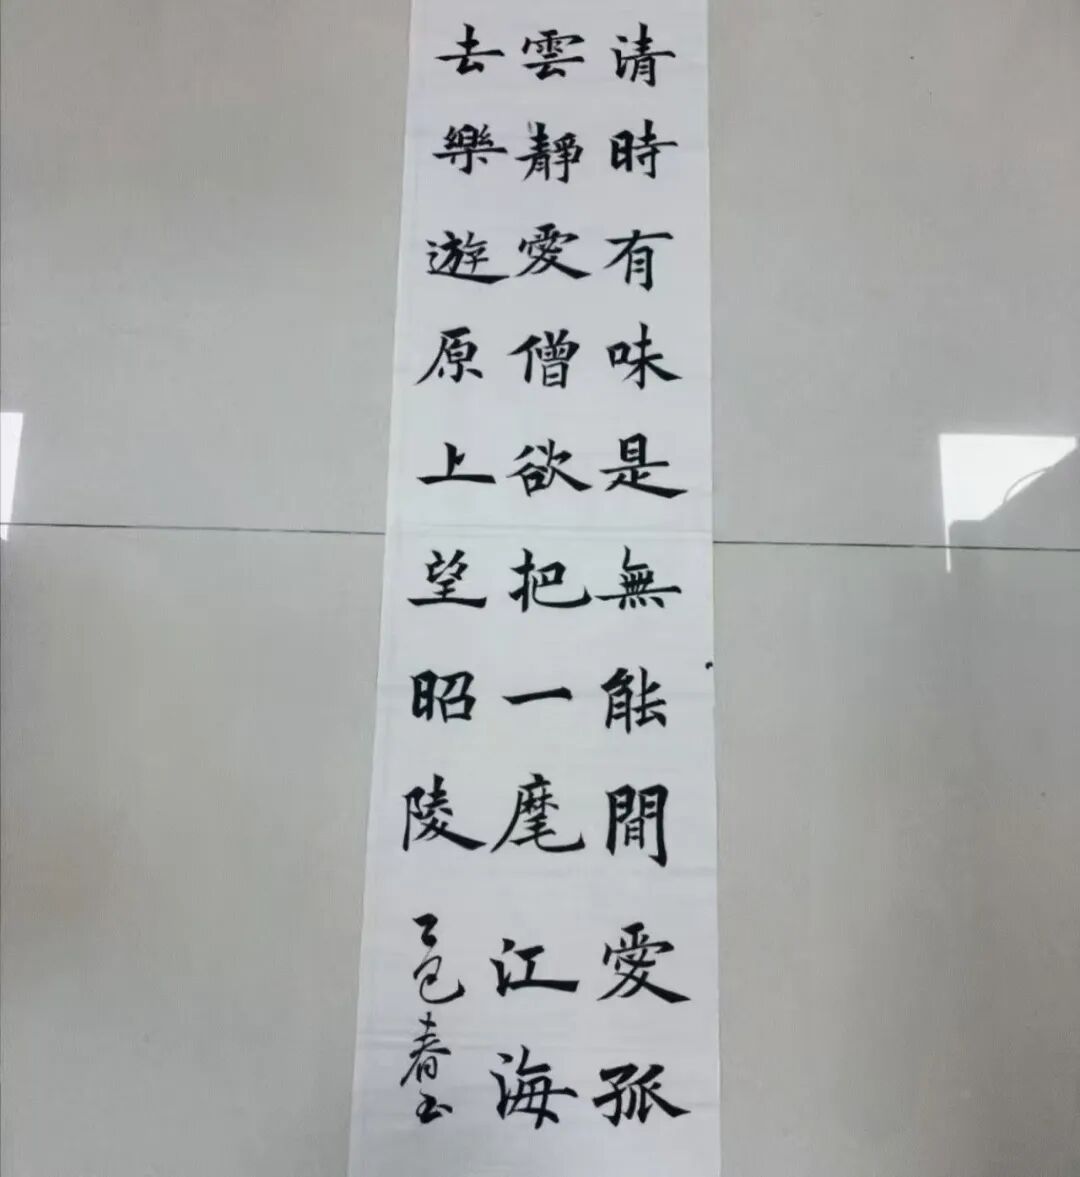 清時有味是無能閒愛孤
雲靜愛僧欲把一麾江海
去樂遊原上望昭陵
春书